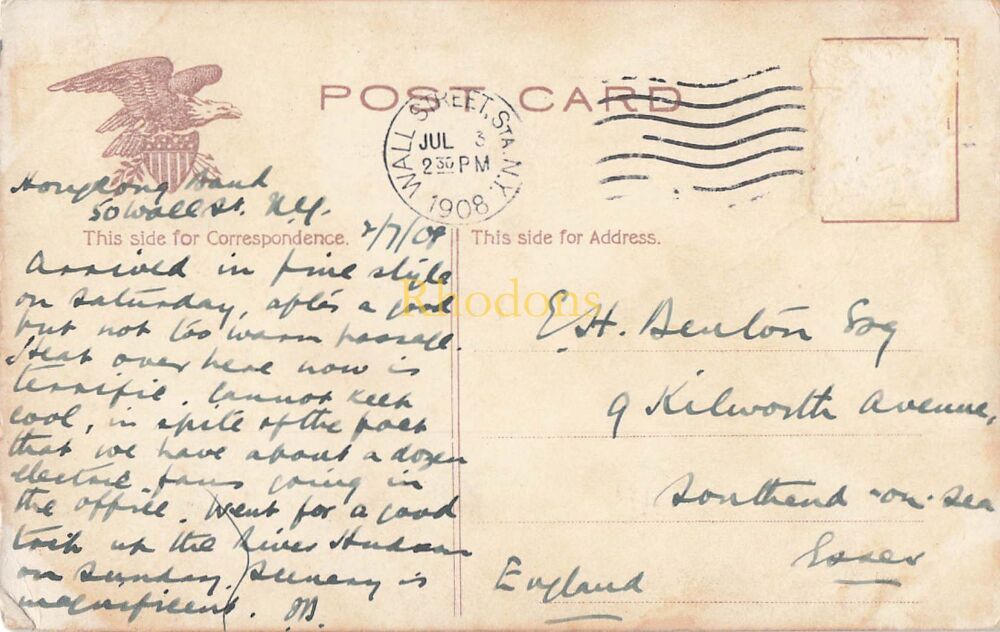 POST CARD
WALL STREET, STA. N.Y.
JUL 3
2 30 PM
1908
Hongkong Bank
50 Wall St. N.Y.
2/7/08
This side for Correspondence.
This side for Address.
Arrived in fine style
on Saturday, after a good
but not too warm passage.
Heat over here now is
terrific. Cannot keep
cool, in spite of the fact
that we have about a dozen
electric fans going in
the office. Went for a good
trip up the River Hudson
on Sunday. Scenery is
magnificent.
E.H. Benton Esq
9 Kilworth Avenue,
Southend-on-Sea
Essex
England
Rhodons